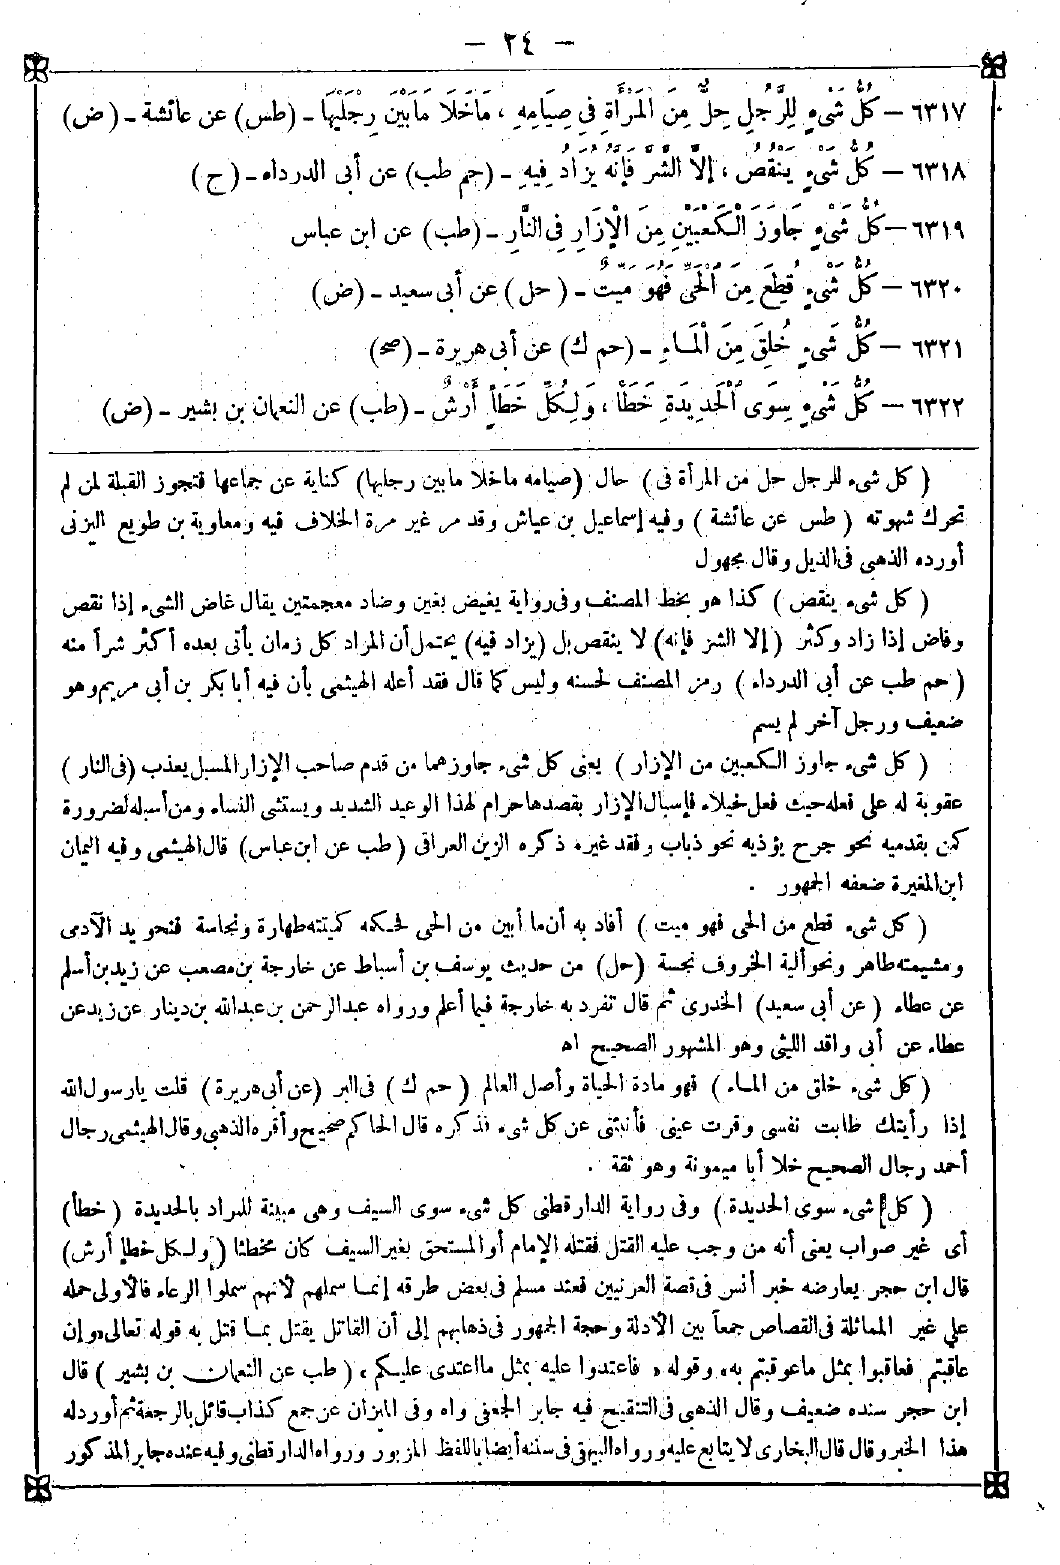 — ٢٤ —
٦٣١٧ — كُلُّ شَيْءٍ لِلرَّجُلِ حِلٌّ مِنَ الْمَرْأَةِ فِي صِيَامِهِ ، مَاخَلَا مَابَيْنَ رِجْلَيْهَا - (طس) عن عائشة - (ض)
٦٣١٨ — كُلُّ شَيْءٍ يَنْقُصُ ، إِلَّا الشَّرَّ فَإِنَّهُ يُزَادُ فِيهِ - (حم طب) عن أبى الدرداء - (ح)
٦٣١٩ — كُلُّ شَيْءٍ جَاوَزَ الْكَعْبَيْنِ مِنَ الْإِزَارِ فِى النَّارِ - (طب) عن ابن عباس
٦٣٢٠ — كُلُّ شَيْءٍ قُطِعَ مِنَ الْحَيِّ فَهُوَ مَيِّتٌ - (حل) عن أبى سعيد - (ض)
٦٣٢١ — كُلُّ شَيْءٍ خُلِقَ مِنَ الْمَاءِ - (حم ك) عن أبى هريرة - (صح)
٦٣٢٢ — كُلُّ شَيْءٍ سِوَى الْحَدِيدَةِ خَطَأٌ ، وَلِكُلِّ خَطَأٍ أَرْشٌ - (طب) عن النعمان بن بشير - (ض)
( كل شىء للرجل حل من المرأة فى ) حال (صيامه ماخلا مابين رجليها) كناية عن جماعها فتجوز القبلة لمن لم
تحرك شهوته ( طس عن عائشة ) وفيه إسماعيل بن عياش وقد مر غير مرة الخلاف فيه ومعاوية بن طويع اليزنى
أورده الذهبى فى الذيل وقال مجهول
( كل شىء ينقص ) كذا هو بخط المصنف وفى رواية يغيض بغين وضاد معجمتين يقال غاض الشىء إذا نقص
وفاض إذا زاد وكثر ( إلا الشر فإنه) لا ينقص بل (يزاد فيه) يحتمل أن المراد كل زمان يأتى بعده أكثر شراً منه
( حم طب عن أبى الدرداء ) رمز المصنف لحسنه وليس كما قال فقد أعله الهيثمى بأن فيه أبا بكر بن أبى مريم وهو
ضعيف ورجل آخر لم يسم
( كل شىء جاوز الكعبين من الإزار ) يعنى كل شىء جاوزهما من قدم صاحب الإزار المسبل يعذب (فى النار )
عقوبة له على فعله حيث فعل خيلاء فإسبال الإزار بقصدها حرام لهذا الوعيد الشديد ويستثنى النساء ومن أسبله لضرورة
كمن بقدميه نحو جرح يؤذيه نحو ذباب وفقد غيره ذكره الزين العراقى ( طب عن ابن عباس) قال الهيثمى وفيه اليمان
ابن المغيرة ضعفه الجمهور .
( كل شىء قطع من الحى فهو ميت ) أفاد به أن ما أبين من الحى فحكمه كميتته طهارة ونجاسة فنحو يد الآدمى
ومشيمته طاهر ونحو ألية الخروف نجسة (حل) من حديث يوسف بن أسباط عن خارجة بن مصعب عن زيد بن أسلم
عن عطاء ( عن أبى سعيد) الخدرى ثم قال تفرد به خارجة فيما أعلم ورواه عبدالرحمن بن عبدالله بن دينار عن زيد عن
عطاء عن أبى واقد الليثى وهو المشهور الصحيح اه
( كل شىء خلق من الماء ) فهو مادة الحياة وأصل العالم ( حم ك ) فى البر (عن أبى هريرة) قلت يارسول الله
إذا رأيتك طابت نفسى وقرت عينى فأنبئنى عن كل شىء فذكره قال الحاكم صحيح وأقره الذهبى وقال الهيثمى رجال
أحمد رجال الصحيح خلا أبا ميمونة وهو ثقة .
( كل شىء سوى الحديدة ) وفى رواية الدارقطنى كل شىء سوى السيف وهى مبينة للمراد بالحديدة ( خطأ)
أى غير صواب يعنى أنه من وجب عليه القتل فقتله الإمام أو المستحق بغير السيف كان مخطئا ( ولكل خطإ أرش)
قال ابن حجر يعارضه خبر أنس فى قصة العرنيين فعند مسلم فى بعض طرقه إنما سملهم لأنهم سملوا الرعاء فالأولى حمله
على غير المماثلة فى القصاص جمعاً بين الأدلة وحجة الجمهور فى ذهابهم إلى أن القاتل يقتل بما قتل به قوله تعالى «وإن
عاقبتم فعاقبوا بمثل ماعوقبتم به» وقوله « فاعتدوا عليه بمثل مااعتدى عليكم » ( طب عن النعمان بن بشير ) قال
ابن حجر سنده ضعيف وقال الذهبى فى التنقيح فيه جابر الجعفى واه وفى الميزان عن جمع كذاب قائل بالرجعة ثم أورد له
هذا الخبر وقال قال البخارى لا يتابع عليه ورواه البيهقى فى سننه أيضا باللفظ المزبور ورواه الدارقطنى وفيه عنده جابر المذكور